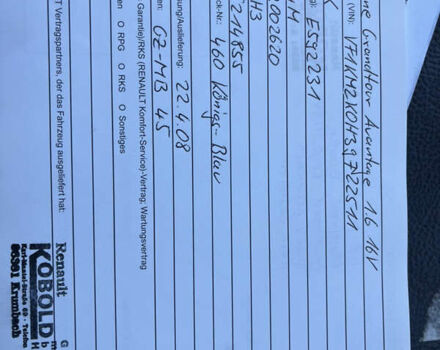 ne Grandtour Avantage 1.6 16V
(VIN): VF1KM2K0H39722511
K
gl: E592231
4M
2002620
H3
214855
ck-Nr.: 460 Königs-Blau
sung/Auslieferung: 22.4.08
en: GZ-MB 45
Garantie)/RKS (RENAULT Komfort-Service)-Vertrag; Wartungsvertrag
en O RPG O RKS O Sonstiges
T Vertragspartners, der das Fahrzeug ausgeliefert hat:
Renault G
KOBOLD
Karl-Mantel-Straße 69 - Telefon
86381 Krumbach